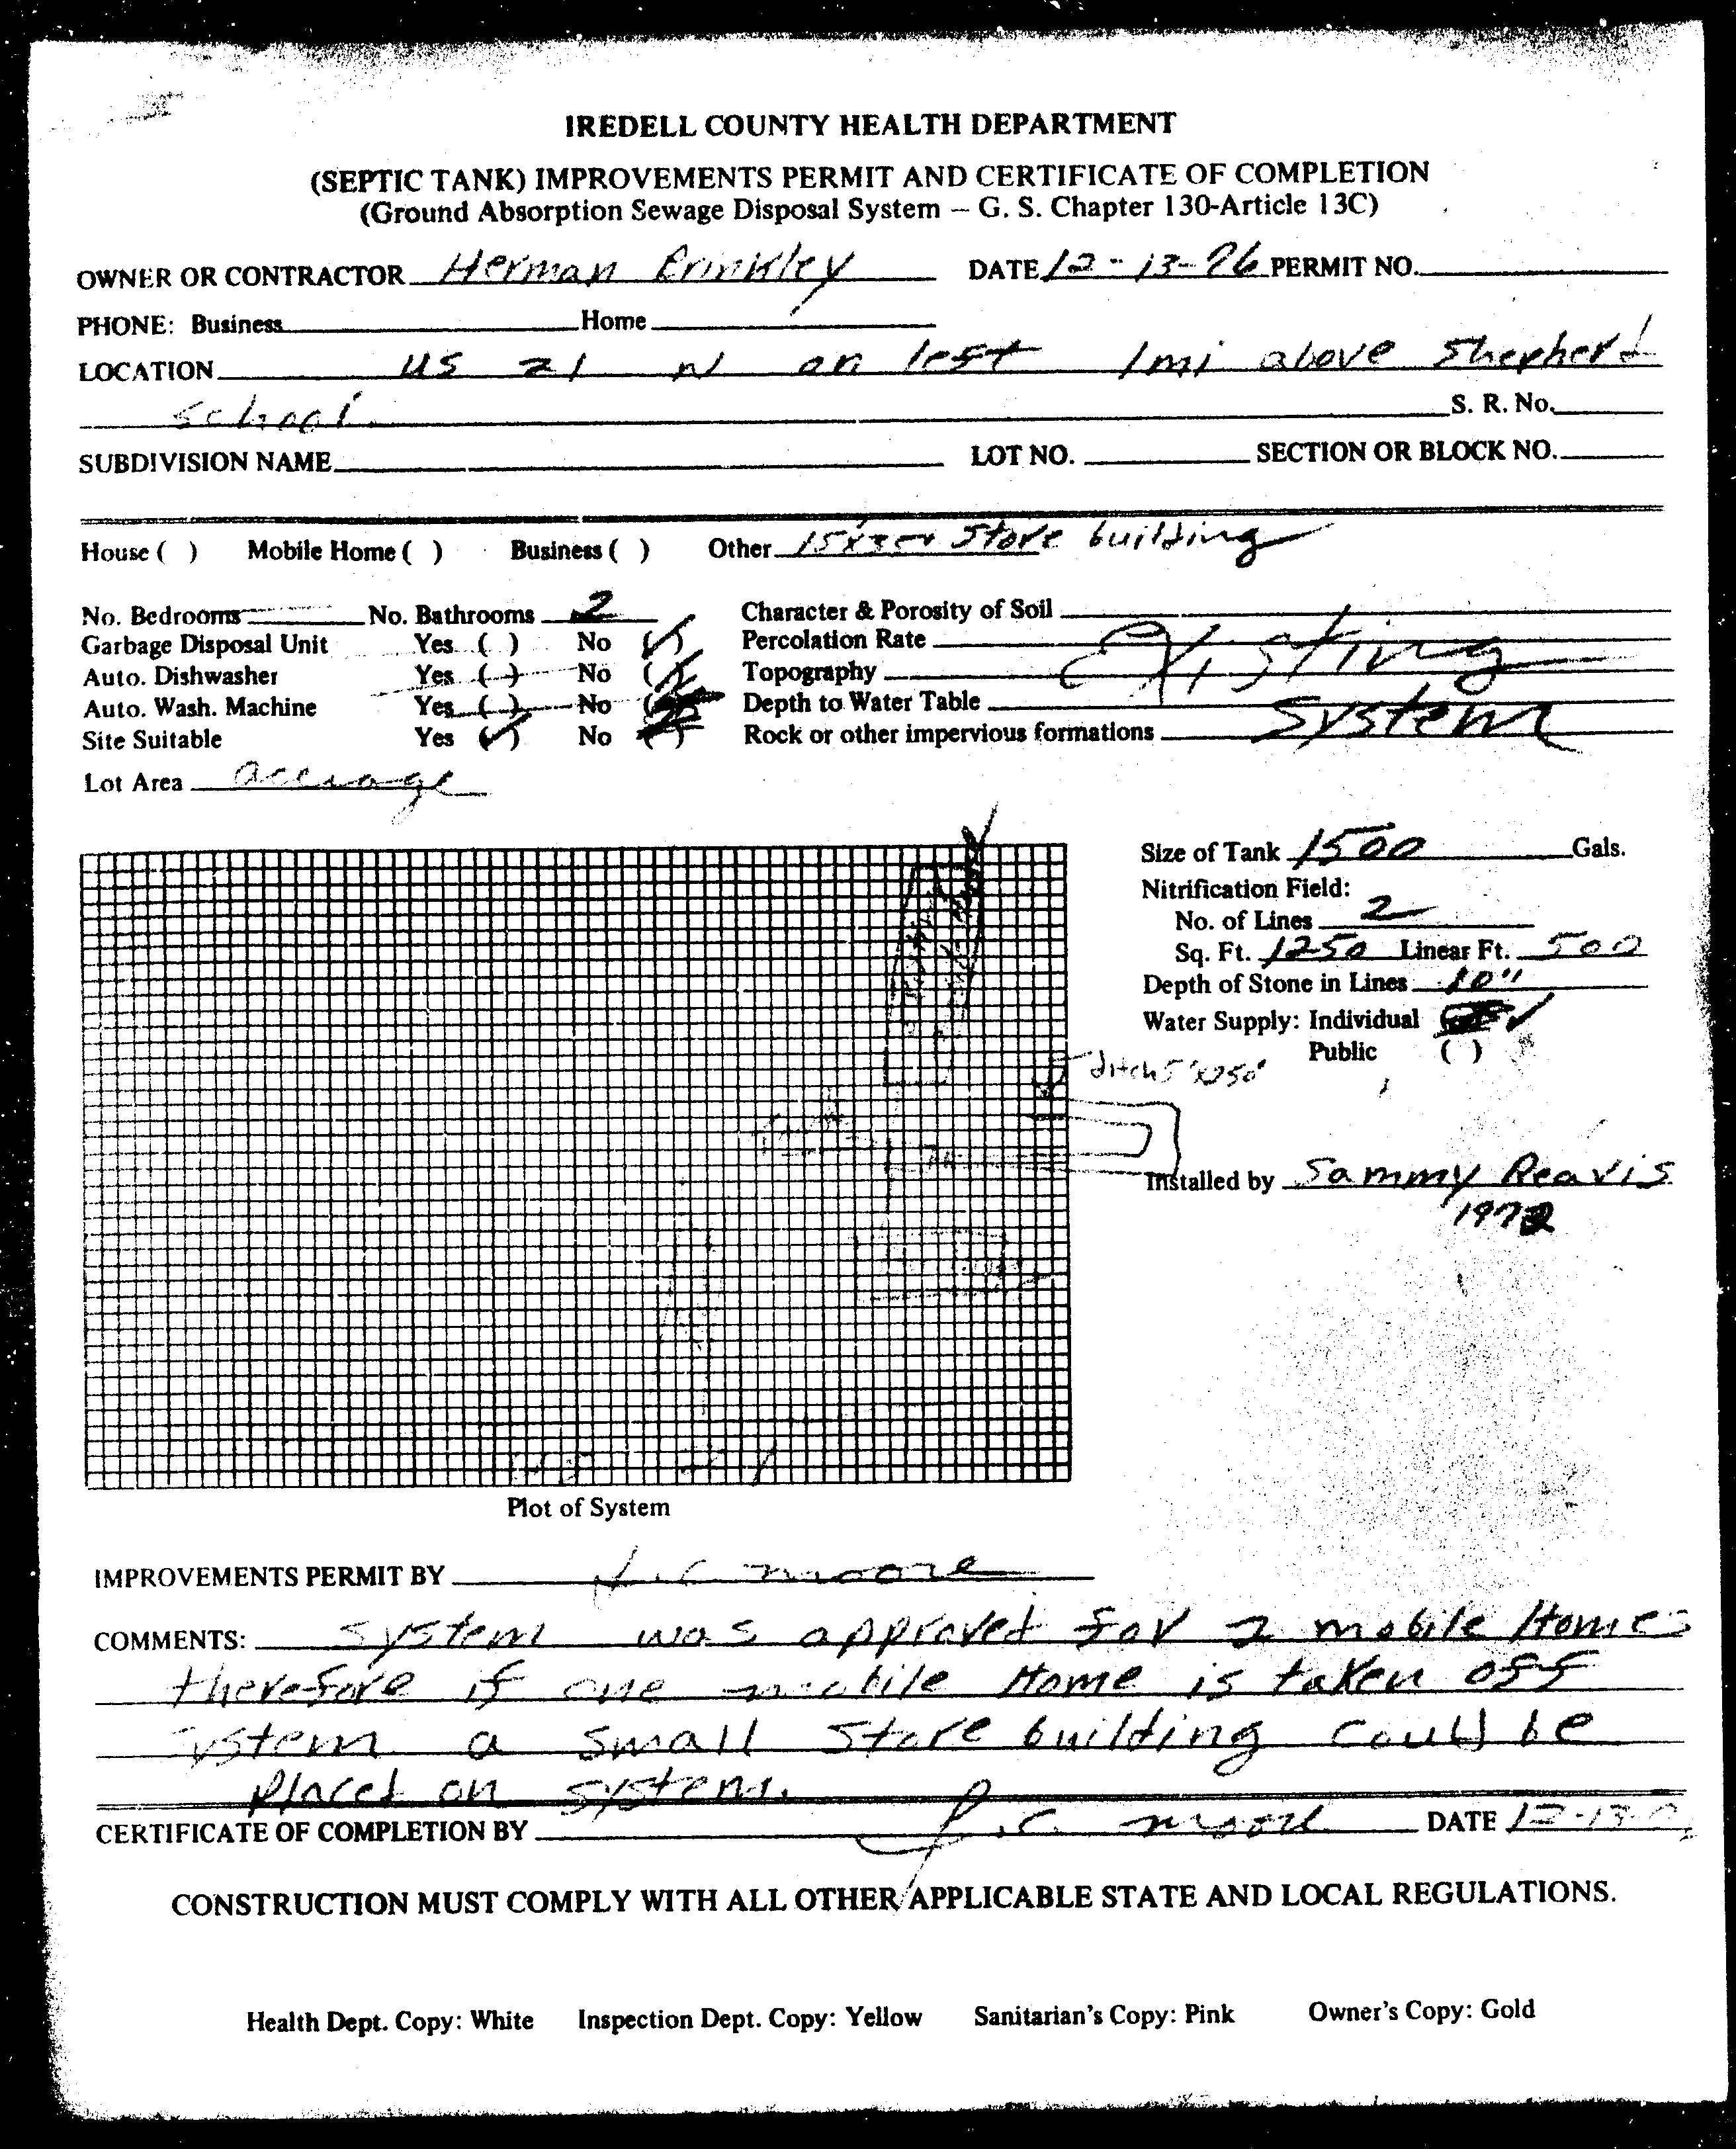 IREDELL COUNTY HEALTH DEPARTMENT
(SEPTIC TANK) IMPROVEMENTS PERMIT AND CERTIFICATE OF COMPLETION
(Ground Absorption Sewage Disposal System – G. S. Chapter 130-Article 13C)
OWNER OR CONTRACTOR Herman Brinkley DATE 12-13-76 PERMIT NO.
PHONE: Business Home
LOCATION US 21 N on left 1mi above Shepherd
school. S. R. No.
SUBDIVISION NAME LOT NO. SECTION OR BLOCK NO.
House ( ) Mobile Home ( ) Business ( ) Other Store building
No. Bedrooms No. Bathrooms 2 Character & Porosity of Soil
Garbage Disposal Unit Yes ( ) No (✓) Percolation Rate Existing
Auto. Dishwasher Yes ( ) No (✓) Topography
Auto. Wash. Machine Yes ( ) No Depth to Water Table System
Site Suitable Yes (✓) No ( ) Rock or other impervious formations
Lot Area accrage
Size of Tank 1500 Gals.
Nitrification Field:
No. of Lines 2
Sq. Ft. 1250 Linear Ft. 500
Depth of Stone in Lines 10"
Water Supply: Individual ✓
Public ( )
ditch 5'x250'
Installed by Sammy Reavis
1972
Plot of System
IMPROVEMENTS PERMIT BY J.C. Moore
COMMENTS: System was approved for 2 mobile Homes
therefore if one mobile Home is taken off
system a small store building could be
placed on system.
CERTIFICATE OF COMPLETION BY J.C. Moore DATE 12-13-
CONSTRUCTION MUST COMPLY WITH ALL OTHER APPLICABLE STATE AND LOCAL REGULATIONS.
Health Dept. Copy: White Inspection Dept. Copy: Yellow Sanitarian's Copy: Pink Owner's Copy: Gold